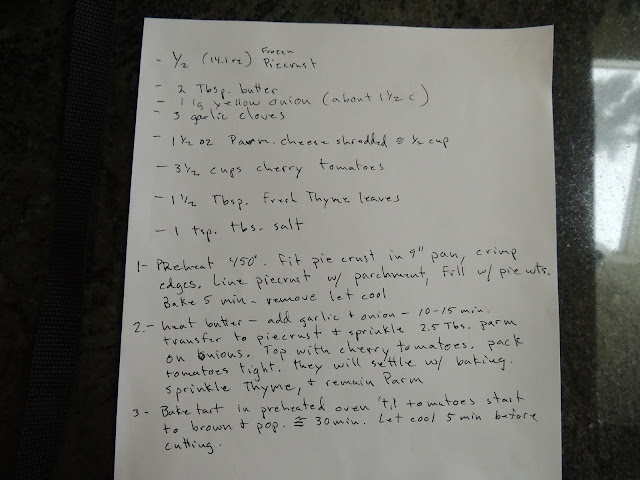 - 1/2 (14.1 oz) Frozen Piecrust
- 2 Tbsp. butter
- 1 lg yellow onion (about 1 1/2 c)
- 3 garlic cloves
- 1 1/2 oz Parm. cheese shredded ≅ 1/2 cup
- 3 1/2 cups cherry tomatoes
- 1 1/2 Tbsp. fresh Thyme leaves
- 1 tsp. tbs. salt
1- PReheat 450°. Fit pie crust in 9" pan, crimp
edges, Line piecrust w/ parchment, fill w/ pie wts.
Bake 5 min - remove let cool
2.- heat butter - add garlic + onion - 10-15 min.
transfer to piecrust + sprinkle 2.5 Tbs. parm
on onions. Top with cherry tomatoes. pack
tomatoes tight. they will settle w/ baking.
sprinkle Thyme, + remain Parm
3 - Bake tart in preheated oven 'til tomatoes start
to brown + pop. ≅ 30 min. Let cool 5 min before
cutting.